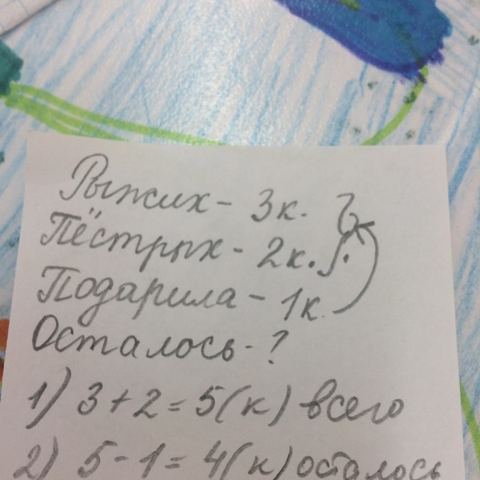 Рыжих - 3к. ?
Пёстрых - 2к.
Подарила - 1к.
Осталось - ?
1) 3 + 2 = 5 (к) всего
2) 5 - 1 = 4 (к) осталось